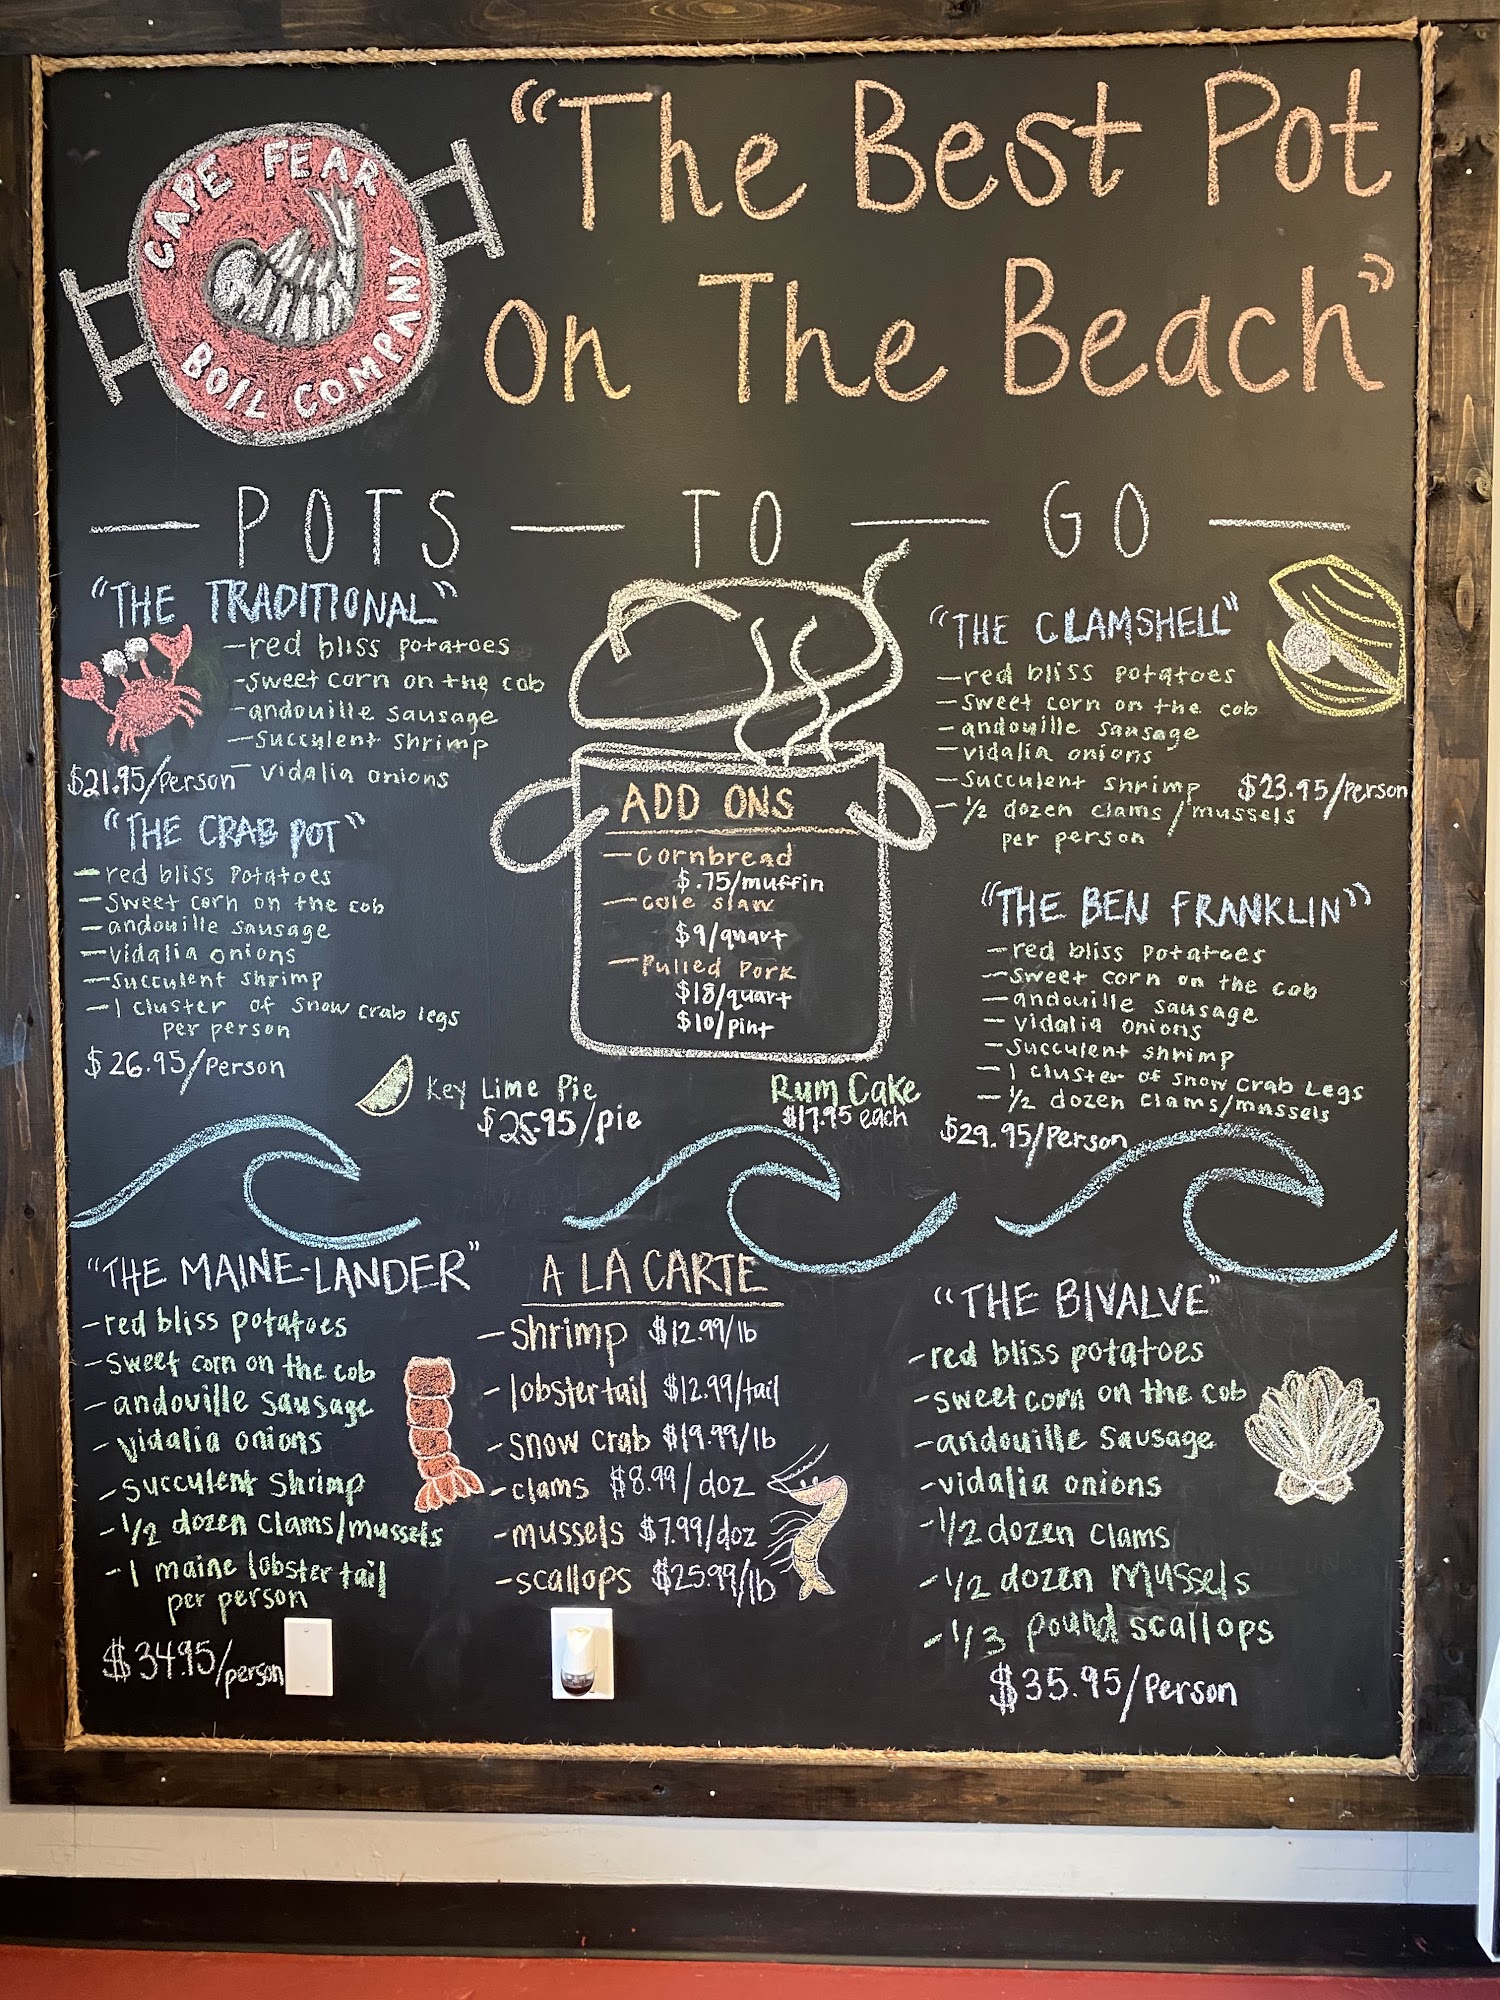 CAPE FEAR
BOIL COMPANY
"The Best Pot
On The Beach"
— POTS — TO — GO —
"THE TRADITIONAL"
-red bliss potatoes
-sweet corn on the cob
-andouille sausage
-succulent shrimp
- vidalia onions
$21.95/person
"THE CRAB POT"
-red bliss potatoes
-sweet corn on the cob
-andouille sausage
-vidalia onions
-succulent shrimp
-1 cluster of snow crab legs
per person
$26.95/person
ADD ONS
-cornbread
$.75/muffin
-cole slaw
$9/quart
-Pulled Pork
$18/quart
$10/pint
Key Lime Pie
$25.95/pie
Rum Cake
$17.95 each
"THE CLAMSHELL"
-red bliss potatoes
-sweet corn on the cob
-andouille sausage
-vidalia onions
-succulent shrimp
$23.95/person
-1/2 dozen clams/mussels
per person
"THE BEN FRANKLIN"
-red bliss potatoes
-sweet corn on the cob
-andouille sausage
-vidalia onions
-succulent shrimp
-1 cluster of snow crab Legs
-1/2 dozen clams/mussels
$29.95/Person
"THE MAINE-LANDER"
-red bliss potatoes
-sweet corn on the cob
-andoville sausage
-vidalia onions
-succulent shrimp
-1/2 dozen clams/mussels
-1 maine lobster tail
per person
$34.95/person
A LA CARTE
-shrimp $12.99/lb
-lobster tail $12.99/tail
-snow crab $19.99/lb
-clams $8.99/doz
-mussels $7.99/doz
-scallops $25.99/lb
"THE BIVALVE"
-red bliss potatoes
-sweet corn on the cob
-andouille sausage
-vidalia onions
-1/2 dozen clams
-1/2 dozen mussels
-1/3 pound scallops
$35.95/Person